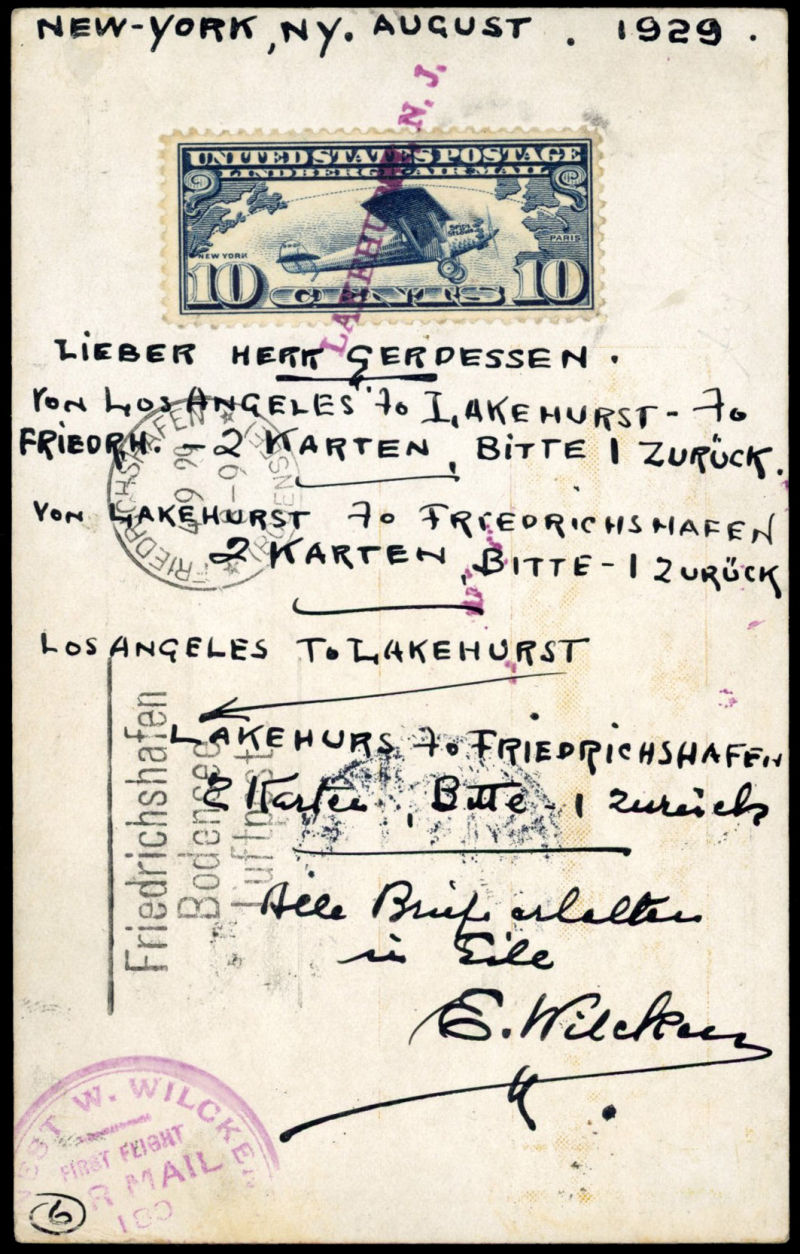 NEW-YORK, NY. AUGUST . 1929 .
LAKEHURST, N. J.
UNITED STATES POSTAGE
LINDBERGH AIR MAIL
SPIRIT OF ST. LOUIS
NEW YORK
PARIS
10 CENTS 10
LIEBER HERR GERDESSEN .
VON LOS ANGELES To LAKEHURST - To
FRIEDRH. - 2 KARTEN, BITTE 1 ZURÜCK.
VON LAKEHURST To FRIEDRICHSHAFEN
2 KARTEN, BITTE - 1 ZURÜCK
FRIEDRICHSHAFEN
(BODENSEE)
4 9 29
LOS ANGELES To LAKEHURST
LAKEHURS To FRIEDRICHSHAFEN
2 Karten, Bitte - 1 zurück
Friedrichshafen
Bodensee
Luftpost
Alle Briefe erhalten
in Eile
E. Wilcken
W. WILCKE
FIRST FLIGHT
R MAIL
6